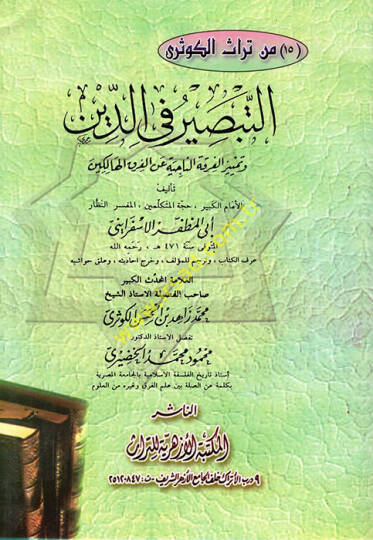 (١٥) من تراث الكوثرى
التبصير فى الدين
وتمييز الفرقة الناجية عن الفرق الهالكين
تأليف
الإمام الكبير، حجة المتكلمين، المفسر النظار
أبى المظفر الإسفراينى
المتوفى سنة ٤٧١ هـ، رحمه الله
عرف الكتاب، وترجم للمؤلف، وخرج أحاديثه، وعلق حواشيه
العلامة المحدث الكبير
صاحب الفضيلة الأستاذ الشيخ
محمد زاهد بن الحسن الكوثرى
تفضل الأستاذ الدكتور
محمود محمد الخضيرى
أستاذ تاريخ الفلسفة الاسلامية بالجامعة المصرية
بكلمة عن الصلة بين علم الفرق وغيره من العلوم
الناشر
المكتبة الأزهرية للتراث
٩ درب الأتراك خلف الجامع الأزهر الشريف - ت: ٢٥١٢٠٨٤٧